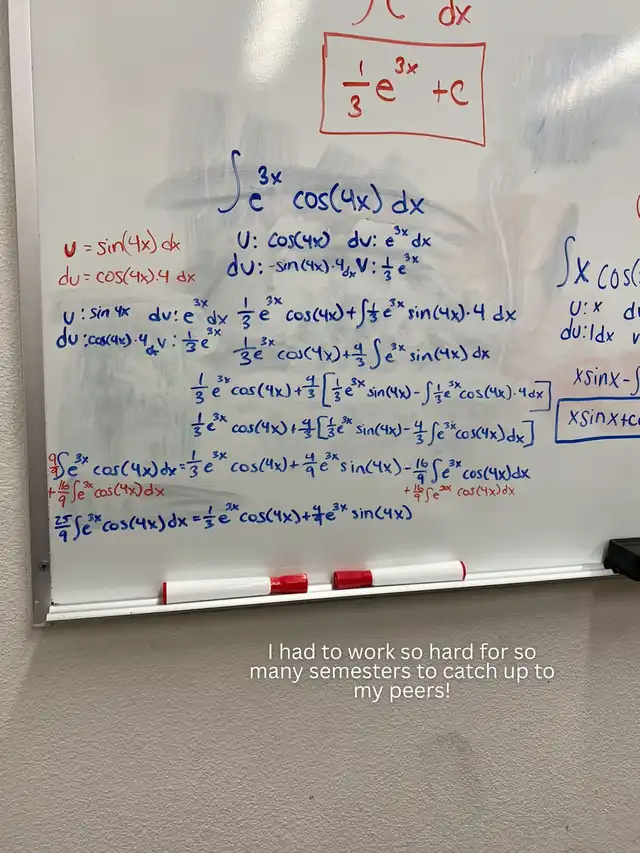 dx
1/3 e^3x + C
∫ e^3x cos(4x) dx
u = sin(4x) dx
du = cos(4x)·4 dx
U: cos(4x) dv: e^3x dx
du: -sin(4x)·4dx V: 1/3 e^3x
u: sin 4x dv: e^3x dx
du: cos(4x)·4dx v: 1/3 e^3x
1/3 e^3x cos(4x) + ∫ 1/3 e^3x sin(4x)·4 dx
1/3 e^3x cos(4x) + 4/3 ∫ e^3x sin(4x) dx
1/3 e^3x cos(4x) + 4/3 [1/3 e^3x sin(4x) - ∫ 1/3 e^3x cos(4x)·4dx]
1/3 e^3x cos(4x) + 4/3 [1/3 e^3x sin(4x) - 4/3 ∫ e^3x cos(4x) dx]
9/9 ∫ e^3x cos(4x) dx = 1/3 e^3x cos(4x) + 4/9 e^3x sin(4x) - 16/9 ∫ e^3x cos(4x) dx
+ 16/9 ∫ e^3x cos(4x) dx + 16/9 ∫ e^3x cos(4x) dx
25/9 ∫ e^3x cos(4x) dx = 1/3 e^3x cos(4x) + 4/9 e^3x sin(4x)
∫ x cos(
U: x d
du: 1dx v
x sin x - ∫
x sin x + co
I had to work so hard for so
many semesters to catch up to
my peers!